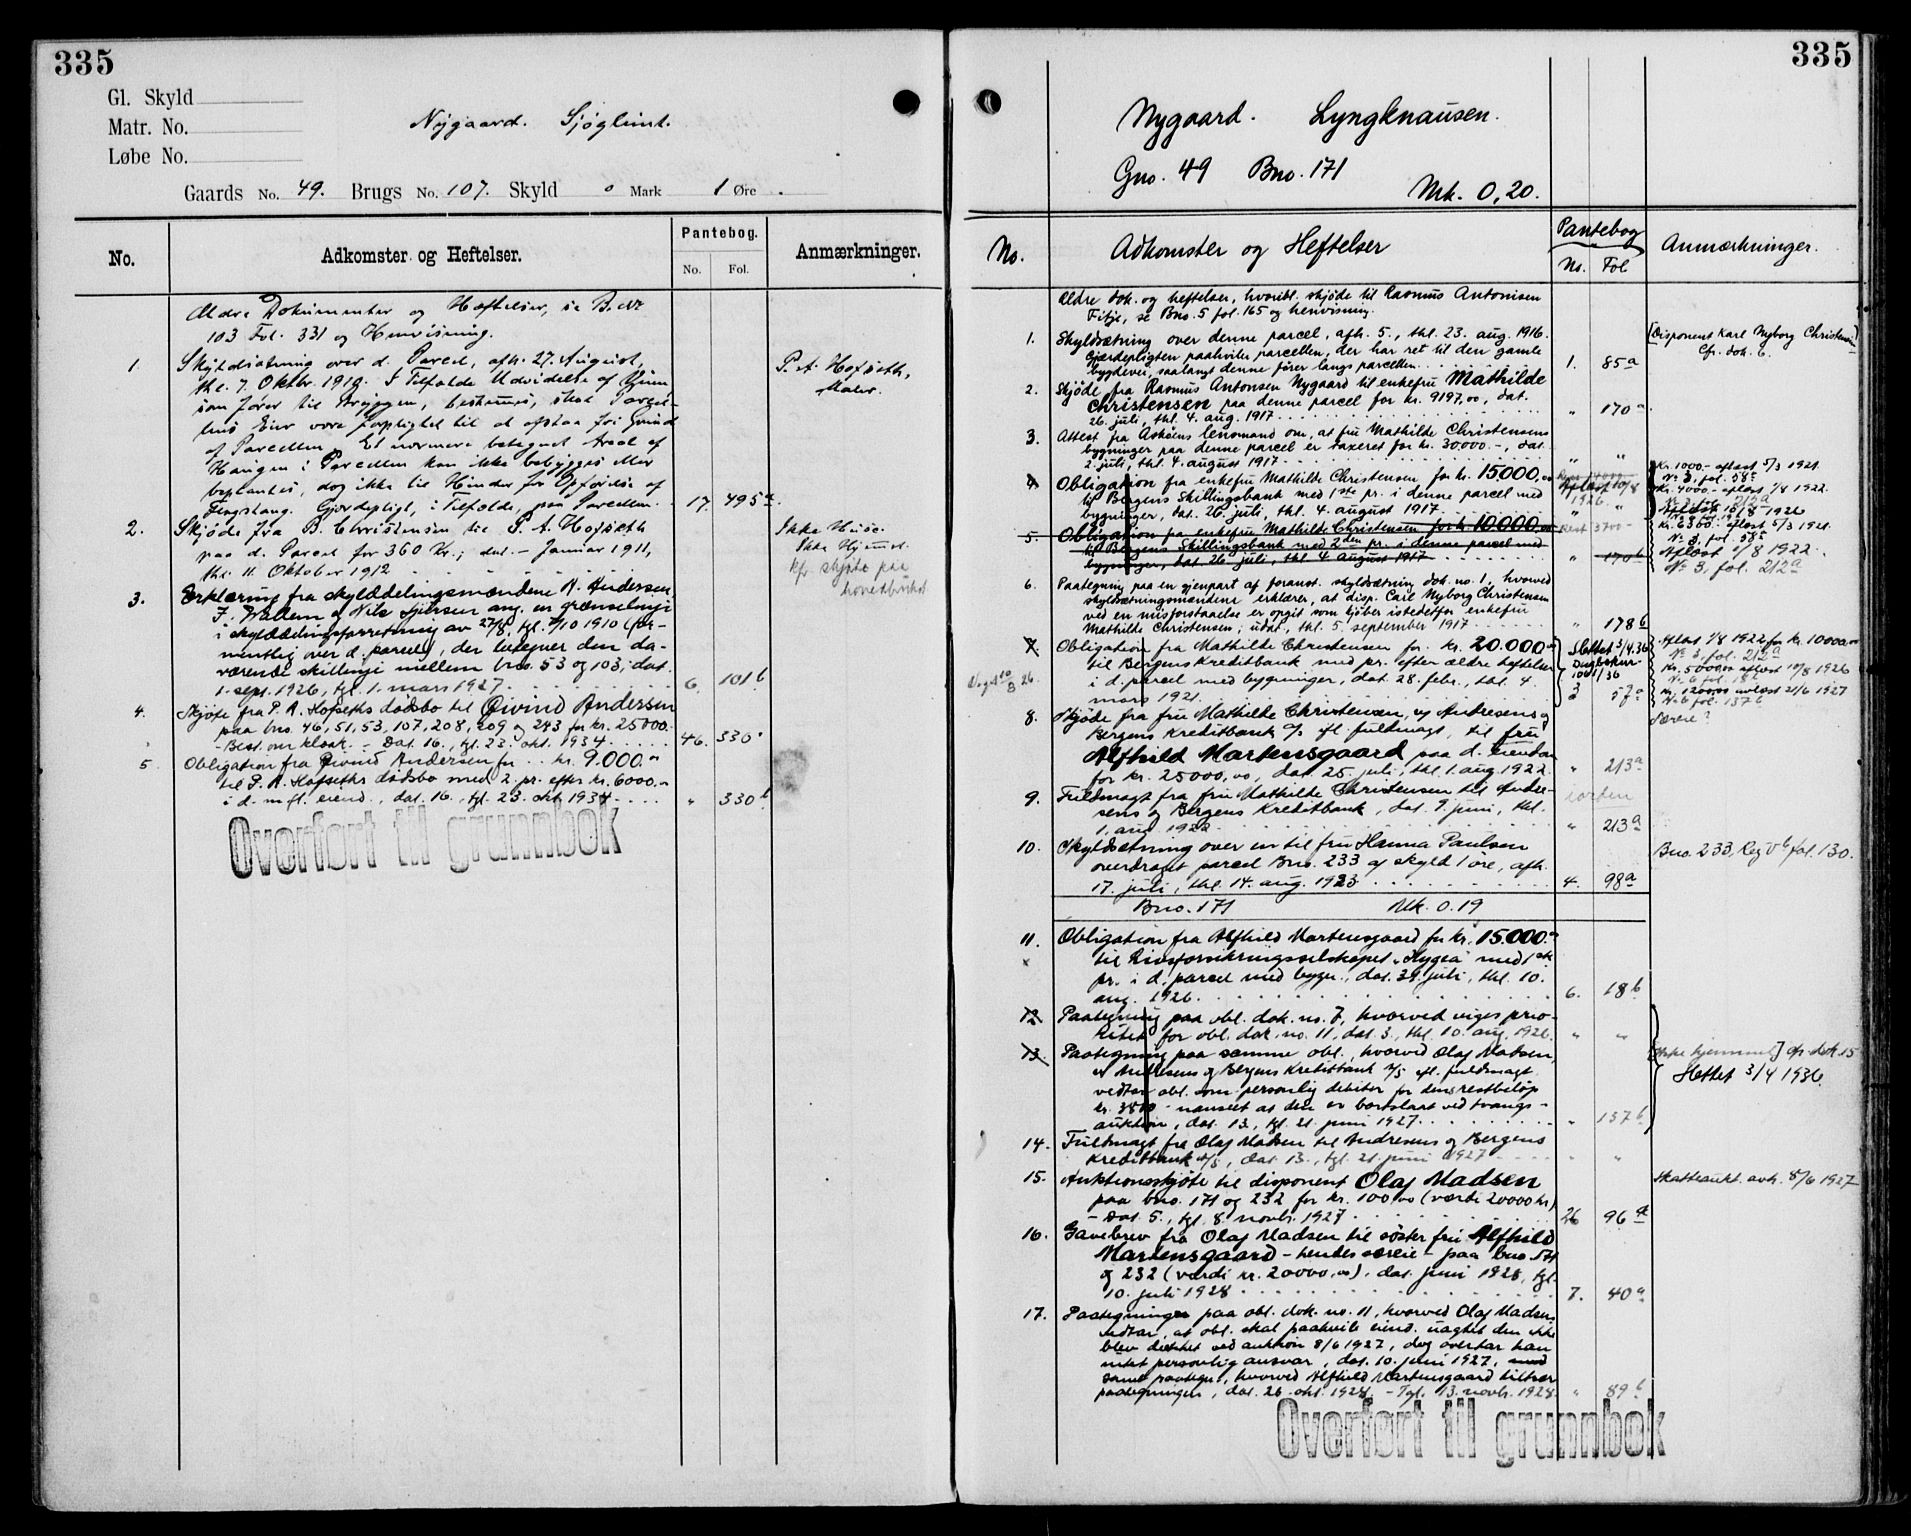 335
Gl. Skyld
Matr. No.
Løbe No.
Nygaard. Sjøglimt.
Gaards No. 49. Brugs No. 107. Skyld 0 Mark 1 Øre
No.
Adkomster og Heftelser.
Pantebog.
No. Fol.
Anmærkninger.
Ældre Dokumenter og Hæftelser, se B. Nr
103 Fol. 331 og Henvisning.
1. Skyldsætning over d. Parcel, afh. 27. August,
thl. 7. Oktbr. 1910. I Tilfælde Udvidelse af
som fører til Bryggen, bestemmes, skal Parcel-
lens Eier være forpligtet til at afstaa fri Grund
af Parcellen. Et nærmere betegnet Areal af
Haugen i Parcellen kan ikke bebygges eller
beplantes, dog ikke til Hinder for Opførelse af
Gjerdepligt, i Tilfælde, paa Parcellen. 17. 495a
P. A. Hofseth,
Maler.
2. Skjøde fra B. Christensen til P. A. Hofseth
paa d. Parcel for 360 Kr., dat. – Januar 1911,
thl. 11. Oktober 1912
Ikke Huse.
Ikke Hjemmel.
kfr. skjøte paa
hovedbruket
3. Erklæring fra skylddelingsmændene A. Andersen,
J. Wallem og Nils Gjertsen ang. en grænselinje
i skylddelingsforretning av 27/8, tgl. 7/10 1910 (for-
mentlig over d. parcel), der betegner den da-
værende skillinje mellem bno. 53 og 103, dat.
1. sept. 1926, tgl. 1. mars 1927 6. 101b
4. Skjøte fra P. A. Hofseths dødsbo til Øivind Andersen
paa bno. 46, 51, 53, 107, 208, 209 og 243 for kr. 25000.
- Best. om kloak. – Dat. 16., tgl. 23. okt. 1934 46. 330
5. Obligation fra Øivind Andersen for kr. 9.000.-
til P. A. Hofseths dødsbo med 2. pr. efter kr. 6000.-
i d. m. fl. eiend., dat. 16., tgl. 23. okt. 1934 " 330b
Overført til grunnbok
335
Nygaard. Lyngknausen.
Gno. 49 Bno. 171
Mrk. 0,20.
No.
Adkomster og Heftelser
Pantebog
No. Fol
Anmærkninger.
Ældre dok. og heftelser, hvoribl. skjøde til Rasmus Antonisen
Fitje, se Bno. 5 fol. 165 og henvisning.
1. Skyldsætning over denne parcel, afh. 5., thl. 23. aug. 1916.
Gjærdepligten paahviler parcellen, der har ret til den gamle
bygdevei, saalangt denne fører langs parcellen 1. 85a
[Disponent Karl Nyborg Christensen]
Cfr. dok. 6.
2. Skjøde fra Rasmus Antonsen Nygaard til enkefru Mathilde
Christensen paa denne parcel for kr. 9197,00, dat.
26. juli, thl. 4. aug. 1917 " 170a
3. Attest fra Askøens lensmand om, at fru Mathilde Christensens
bygninger paa denne parcel er taxeret for kr. 30000.-, dat.
2. juli, thl. 4. august 1917 " "
4. Obligation fra enkefru Mathilde Christensen for kr. 15000,00
til Bergens Skillingsbank med 1ste pr. i denne parcel med
bygninger, dat. 26. juli, thl. 4. august 1917 " "
Aflæst 10/8
1926
Kr. 1000.- aflæst 5/3 1921.
No 3, fol. 58a
Kr. 4000.- aflæst 1/8 1922.
No 3, fol. 212a
Aflæst 10/8 1926
5. Obligation fra enkefru Mathilde Christensen for kr. 10.000,00
til Bergens Skillingsbank med 2den pr. i denne parcel med
bygninger, dat. 26. juli, thl. 4. august 1917 " 170b
Rest 3700.-
Kr. 6300.- aflæst 5/3 1921.
No 3, fol. 58a
Aflæst 1/8 1922.
No 3, fol. 212a
6. Paategning paa en gjenpart af foranst. skyldsætning dok. no. 1, hvorved
skyldsætningsmændene erklærer, at disp. Carl Nyborg Christensen
ved en misforstaaelse er opgit som kjøber istedetfor enkefru
Mathilde Christensen; udat., thl. 5. september 1917 " 178b
7. Obligation fra Mathilde Christensen for kr. 20.000.00
til Bergens Kreditbank med pr. efter ældre heftelser
i d. parcel med bygninger, dat. 28. febr., thl. 4.
mars 1921. 3 57a
Slettet 3/4.36
Dagboknr.
1061/36
Aflæst 1/8 1922 for kr. 10000.00
No 3, fol. 212a
Kr. 5000.00 aflæst 10/8 1926
No 6 fol. 18b
Kr. 1200.00 avlæst 21/6 1927
No 6 fol. 137b
8. Skjøde fra fru Mathilde Christensen, v/ Andresens og
Bergens Kreditbank A/S efl. fuldmagt, til fru
Alfhild Martensgaard paa d. eiendom
for kr. 25000,00, dat. 25. juli, thl. 1. aug. 1922. " 213a
Særeie?
9. Fuldmagt fra fru Mathilde Christensen til Andre-
sens og Bergens Kreditbank, dat. 9. juni, thl.
1. aug. 1922 " 213a
10. Skyldsætning over en til fru Hanna Paulsen
overdraget parcel Bno. 233 af skyld 1 øre, afh.
17. juli, thl. 14. aug. 1923 4. 98a
Bno. 233, Reg. Vb fol. 130.
Bno. 171 Mk. 0.19
11. Obligation fra Alfhild Martensgaard for kr. 15.000.-
til Livsforsikringsselskapet "Hygea" med 1ste
pr. i d. parcel med bygn., dat. 31. juli, thl. 10.
aug. 1926 6. 18b
12. Paategning paa obl. dok. no. 7, hvorved viges prio-
ritet for obl. dok. no. 11, dat. 3., thl. 10. aug. 1926. " "
13. Paategning paa samme obl., hvorved Olaf Madsen,
v/ Andresens og Bergens Kreditbank A/S efl. fuldmagt
vedtar obl. som personlig debitor for dens restbeløp
kr. 3800 – uanseet at den er bortslaat ved tvangs-
auktion, dat. 13., tgl. 21. juni 1927 " 137b
[Ikke hjemmel] cfr. dok. 15
Slettet 3/4 1936
14. Fuldmagt fra Olaf Madsen til Andresens og Bergens
Kreditbank A/S, dat. 13., tgl. 21. juni 1927 " "
15. Auktionsskjøte til disponent Olaf Madsen
paa bno. 171 og 232 for kr. 100.00 (værdi 20000 kr.)
– Dat. 5., tgl. 8. novbr. 1927 26 96a
Skatteaukt. avh. 8/6 1927
16. Gavebrev fra Olaf Madsen til søster fru Alfhild
Martensgaard – hendes særeie – paa bno. 171
og 232 (værdi kr. 20000,00), dat. juni 1928, tgl.
10. juli 1928 7. 40a
17. Paategninger paa obl. dok. no. 11, hvorved Olaf Madsen
vedtar, at obl. skal paahvile eiend. uagtet den ikke
blev dækket ved auktion 8/6 1927, dog overtar han
intet personlig ansvar, dat. 10. juni 1927,
samt paategn., hvorved Alfhild Martensgaard tiltrær
paategningen, dat. 26. okt. 1928. – Tgl. 13. novbr. 1928 " 89b
Overført til grunnbok